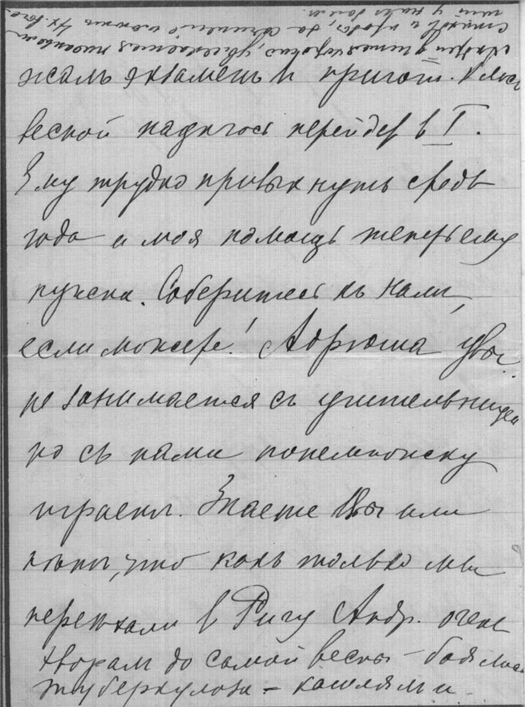 жалъ экзаменъ в пригот. класс
весной надѣюсь перейдет в I.
Ему трудно привыкнуть средь
года и моя помощь теперь ему
нужна. Соберитесь къ намъ,
если можете! Андрюша увы
не занимается съ учительницей
но съ нами понемножку
играетъ. Знаете Вы или
нѣтъ, что какъ только мы
переѣхали в Ригу Андр. очень
хворалъ до самой весны – боялись
туберкулоза – кашлялъ и